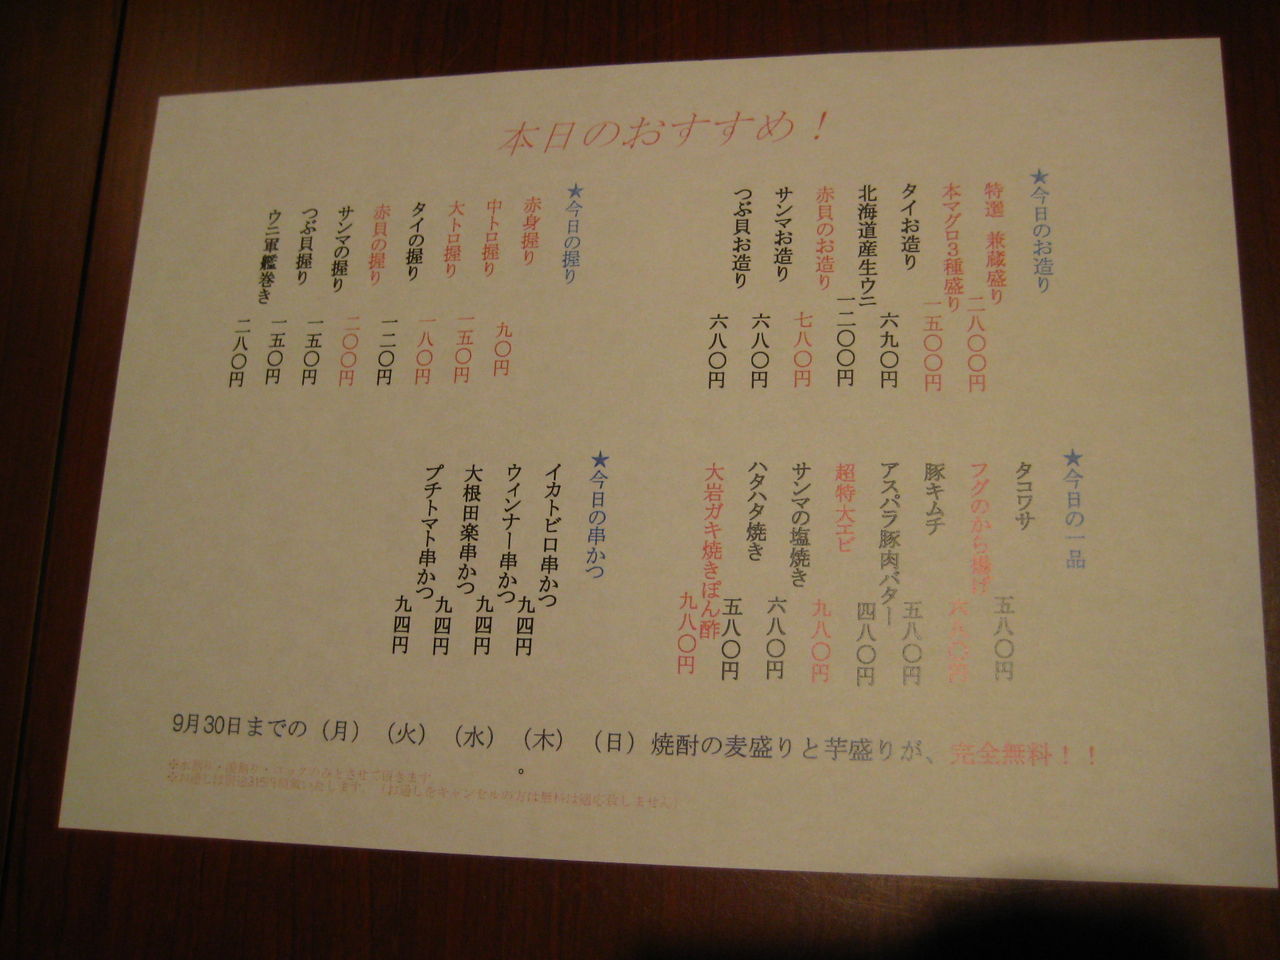 本日のおすすめ！
★今日のお造り
特選　兼蔵盛り
二八〇〇円
本マグロ３種盛り
一五〇〇円
タイお造り
六九〇円
北海道産生ウニ
一二〇〇円
赤貝のお造り
七八〇円
サンマお造り
六八〇円
つぶ貝お造り
六八〇円
★今日の握り
赤身握り
九〇円
中トロ握り
一五〇円
大トロ握り
一八〇円
タイの握り
一二〇円
赤貝の握り
二〇〇円
サンマの握り
一五〇円
つぶ貝握り
一五〇円
ウニ軍艦巻き
二八〇円
★今日の一品
タコワサ
五八〇円
フグのから揚げ
八〇円
豚キムチ
五八〇円
アスパラ豚肉バター
四八〇円
超特大エビ
九八〇円
サンマの塩焼き
六八〇円
ハタハタ焼き
五八〇円
大岩ガキ焼きぽん酢
九八〇円
★今日の串かつ
イカトビロ串かつ
九四円
ウィンナー串かつ
九四円
大根田楽串かつ
九四円
プチトマト串かつ
九四円
9月30日までの（月）（火）（水）（木）（日）焼酎の麦盛りと芋盛りが、完全無料！！
。
※水割り・湯割り・ロックのみとさせて頂きます
※お通しは別途315円頂戴いたします。（お通しをキャンセルの方は無料は適応致しません）